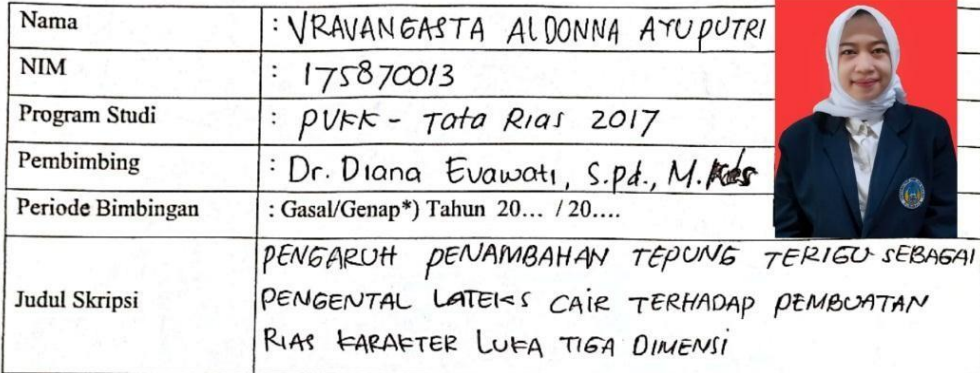 Nama : VRAVANGASTA ALDONNA AYU PUTRI
NIM : 175870013
Program Studi : PVKK - Tata Rias 2017
Pembimbing : Dr. Diana Evawati, S.Pd., M.Kes
Periode Bimbingan : Gasal/Genap*) Tahun 20... / 20....
Judul Skripsi
PENGARUH PENAMBAHAN TEPUNG TERIGU SEBAGAI
PENGENTAL LATEKS CAIR TERHADAP PEMBUATAN
RIAS KARAKTER LUKA TIGA DIMENSI